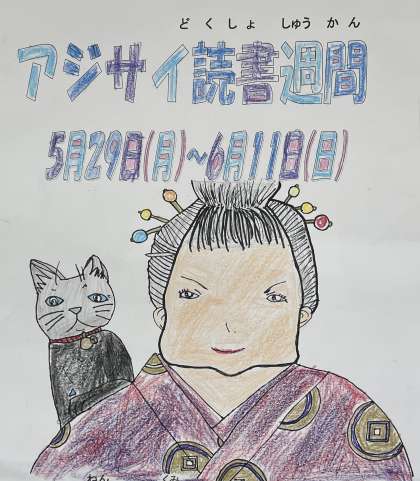 どくしょ しゅうかん
アジサイ読書週間
5月29日(月)～6月11日(日)
ねん くみ